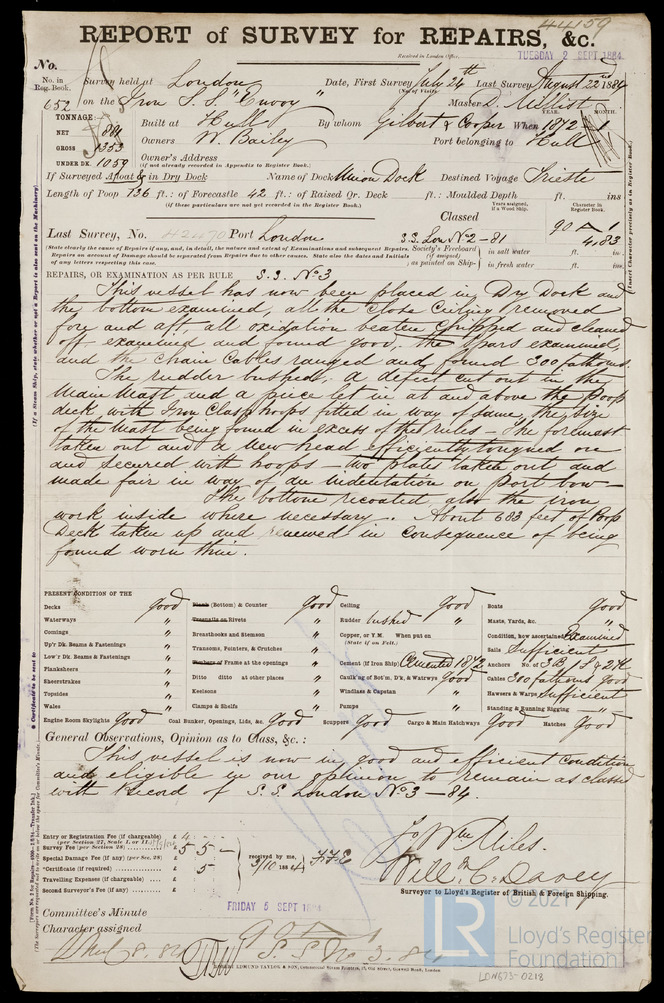 44159
REPORT of SURVEY for REPAIRS, &c.
Received in London Office
TUESDAY 2 SEPT 1884
No.
No. in Reg. Book. Survey held at London Date, First Survey July 24th Last Survey August 22nd 1884
(No. of Visits)
652 on the Iron S.S. "Envoy" Master D. Millist
TONNAGE YEAR. MONTH.
NET 881 Built at Hull By whom Gilbert & Cooper When 1872
GROSS 1353 Owners W. Bailey Port belonging to Hull
UNDER DK. 1059 Owner's Address
(if not already recorded in Appendix to Register Book.)
If Surveyed Afloat & in Dry Dock Name of Dock Union Dock Destined Voyage Trieste
Length of Poop 136 ft.: of Forecastle 42 ft.: of Raised Qr. Deck ft.: Moulded Depth ft. ins
(if these particulars are not yet recorded in the Register Book.)
Years assigned, if a Wood Ship. Character in Register Book.
Classed 90 A 1
Last Survey, No. 42470 Port London S.S. Lon No 2-81 4,83
(State clearly the cause of Repairs if any, and, in detail, the nature and extent of Examinations and subsequent Repairs.
Repairs on account of Damage should be separated from Repairs due to other causes. State also the dates and Initials
of any letters respecting this case.
Society's Freeboard (if assigned) as painted on Ship- in salt water ft. in.
in fresh water ft. in.
REPAIRS, OR EXAMINATION AS PER RULE S.S. No 3
This vessel has now been placed in Dry Dock and
the bottom examined, all the close Ceiling removed
fore and aft, all oxidation beaten chipped and cleaned
off examined and found good, the spars examined,
and the chain Cables ranged and found 300 fathoms.
The rudder bushed, a defect cut out in the
Main Mast, and a piece let in at and above the Poop
deck, with Iron Clasp hoops fitted in way of same, the size
of the Mast being found in excess of the rules - The foremast
taken out and a new head efficiently tongued on
and secured with hoops - two plates taken out and
made fair in way of an indentation on port bow -
The bottom recoated also the iron
work inside where necessary. About 683 feet of Poop
Deck taken up and renewed in consequence of being
found worn thin.
PRESENT CONDITION OF THE
Decks good
Waterways "
Comings "
Up'r Dk. Beams & Fastenings "
Low'r Dk. Beams & Fastenings "
Planksheers "
Sheerstrakes "
Topsides "
Wales "
Engine Room Skylights good
Plank (Bottom) & Counter good
Treenails or Rivets "
Breasthooks and Stemson "
Transoms, Pointers, & Crutches "
Timbers of Frame at the openings "
Ditto ditto at other places "
Keelsons "
Clamps & Shelfs "
Coal Bunker, Openings, Lids, &c. good
Ceiling good
Rudder bushed "
Copper, or Y.M. When put on
(State if on Felt.)
Cement (If Iron Ship) Cemented 1872
Caulk'g of Bot'm, D'k, & Watrwys good
Windlass & Capstan "
Pumps "
Scuppers good Cargo & Main Hatchways good
Boats good
Masts, Yards, &c. "
Condition, how ascertained Examined
Sails Sufficient
Anchors No. of 3 B, 1 S & 2 K
Cables 300 fathoms good
Hawsers & Warps Sufficient
Standing & Running Rigging "
Hatches good
General Observations, Opinion as to Class, &c.:
This vessel is now in good and efficient condition
and eligible in our opinion to remain as classed
with Record of S.S. London No 3 - 84.
Entry or Registration Fee (if chargeable) £
(per Section 27, Scale I. or II.)
Survey Fee (per Section 28) £ 5 5 -
Special Damage Fee (if any) (per Sec. 28) £
*Certificate (if required) £ 5
Travelling Expenses (if chargeable) £
Second Surveyor's Fee (if any) £
received by me,
3/10 1884
For Wm Miles.
Will: C. Davey
Surveyor to Lloyd's Register of British & Foreign Shipping.
FRIDAY 5 SEPT 1884
Committee's Minute
Character assigned 90 A 1
S.S. No 3. 84
ROBERT EDMUND TAYLOR & SON, Commercial Steam Printers, 19, Old Street, Goswell Road, London.
LR
© 2021
Lloyd's Register
Foundation
LON673-0218